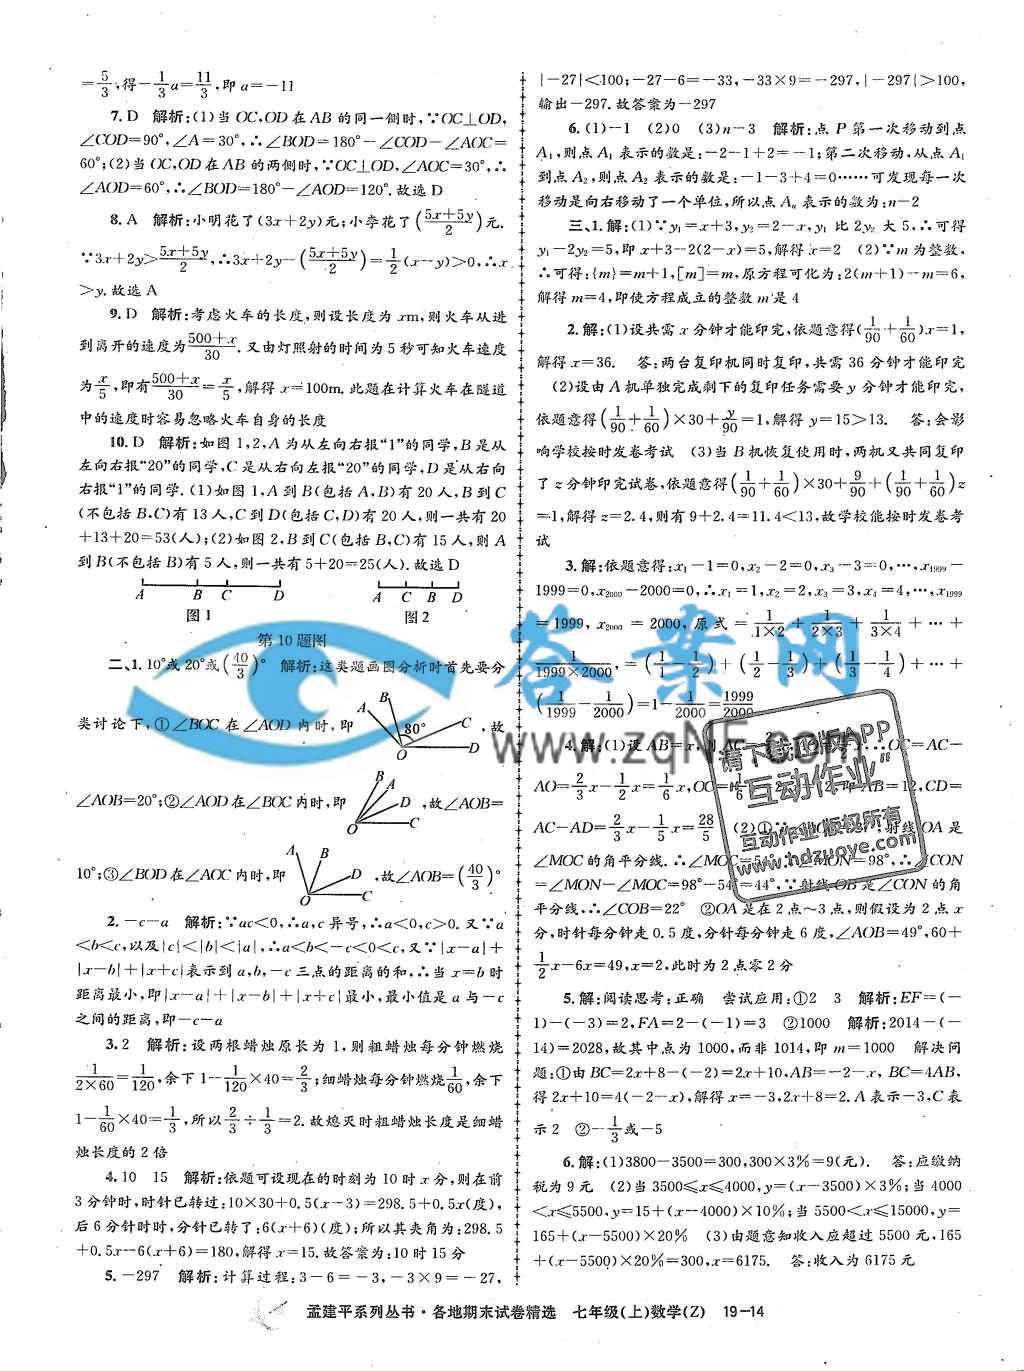 =5/3,得-1/3a=11/3,即a=-11
7.D 解析:(1)当OC,OD在AB的同一侧时,∵OC⊥OD,
∠COD=90°,∠A=30°,∴∠BOD=180°-∠COD-∠AOC=
60°;(2)当OC,OD在AB的两侧时,∵OC⊥OD,∠AOC=30°,∴
∠AOD=60°,∴∠BOD=180°-∠AOD=120°.故选D
8.A 解析:小明花了(3x+2y)元;小李花了(5x+5y/2)元.
∵3x+2y>5x+5y/2,∴3x+2y-(5x+5y/2)=1/2(x-y)>0,∴x
>y.故选A
9.D 解析:考虑火车的长度,则设长度为xm,则火车从进
到离开的速度为500+x/30.又由灯照射的时间为5秒可知火车速度
为x/5,即有500+x/30=x/5,解得x=100m.此题在计算火车在隧道
中的速度时容易忽略火车自身的长度
10.D 解析:如图1,2,A为从左向右报“1”的同学,B是从
左向右报“20”的同学,C是从右向左报“20”的同学,D是从右向
右报“1”的同学.(1)如图1,A到B(包括A,B)有20人,B到C
(不包括B,C)有13人,C到D(包括C,D)有20人,则一共有20
+13+20=53(人);(2)如图2,B到C(包括B,C)有15人,则A
到B(不包括B)有5人,则一共有5+20=25(人).故选D
A B C D A C B D
图1 图2
第10题图
二、1.10°或20°或(40/3)° 解析:这类题画图分析时首先要分
类讨论下,①∠BOC在∠AOD内时,即 A B 80° C O D ,故
∠AOB=20°;②∠AOD在∠BOC内时,即 B A D O C ,故∠AOB=
10°;③∠BOD在∠AOC内时,即 A B D O C ,故∠AOB=(40/3)°
2.-c-a 解析:∵ac<0,∴a,c异号,∴a<0,c>0.又∵a
<b<c,以及|c|<|b|<|a|,∴a<b<-c<0<c,又∵|x-a|+
|x-b|+|x+c|表示到a,b,-c三点的距离的和,∴当x=b时
距离最小,即|x-a|+|x-b|+|x+c|最小,最小值是a与-c
之间的距离,即-c-a
3.2 解析:设两根蜡烛原长为1,则粗蜡烛每分钟燃烧
1/2×60=1/120,余下1-1/120×40=2/3;细蜡烛每分钟燃烧1/60,余下
1-1/60×40=1/3,所以2/3÷1/3=2.故熄灭时粗蜡烛长度是细蜡
烛长度的2倍
4.10 15 解析:依题可设现在的时刻为10时x分,则在前
3分钟时,时针已转过:10×30+0.5(x-3)=298.5+0.5x(度),
后6分针时时,分针已转了:6(x+6)(度);所以其夹角为:298.5
+0.5x-6(x+6)=180,解得x=15.故答案为:10时15分
5.-297 解析:计算过程:3-6=-3,-3×9=-27,
|-27|<100;-27-6=-33,-33×9=-297,|-297|>100,
输出-297.故答案为-297
6.(1)-1 (2)0 (3)n-3 解析:点P第一次移动到点
A₁,则点A₁表示的数是:-2-1+2=-1;第二次移动,从点A₁
到点A₂,则点A₂表示的数是:-1-3+4=0……可发现每一次
移动是向右移动了一个单位,所以点Aₙ表示的数为:n-2
三、1.解:(1)∵y₁=x+3,y₂=2-x,y₁比2y₂大5,∴可得
y₁-2y₂=5,即x+3-2(2-x)=5,解得x=2 (2)∵m为整数,
∴可得:{m}=m+1,[m]=m,原方程可化为:2(m+1)-m=6,
解得m=4,即使方程成立的整数m是4
2.解:(1)设共需x分钟才能印完,依题意得(1/90+1/60)x=1,
解得x=36. 答:两台复印机同时复印,共需36分钟才能印完
(2)设由A机单独完成剩下的复印任务需要y分钟才能印完,
依题意得(1/90+1/60)×30+y/90=1,解得y=15>13. 答:会影
响学校按时发卷考试 (3)当B机恢复使用时,两机又共同复印
了z分钟印完试卷,依题意得(1/90+1/60)×30+9/90+(1/90+1/60)z
=1,解得z=2.4,则有9+2.4=11.4<13,故学校能按时发卷考
试
3.解:依题意得:x₁-1=0,x₂-2=0,x₃-3=0,…,x₁₉₉₉-
1999=0,x₂₀₀₀-2000=0,∴x₁=1,x₂=2,x₃=3,x₄=4,…,x₁₉₉₉
=1999,x₂₀₀₀=2000,原式=1/1×2+1/2×3+1/3×4+…+
1/1999×2000,=(1/1-1/2)+(1/2-1/3)+(1/3-1/4)+…+
(1/1999-1/2000)=1-1/2000=1999/2000
4.解:(1)设AB=x,则AC=2/3 ∴OC=AC-
AO=2/3x-1/2x=1/6x,OC= 1/6 2,即AB=12,CD=
AC-AD=2/3x-1/5x=28/5 (2)①∵ 射线OA是
∠MOC的角平分线.∴∠MOC=54°,∠MON=98°,∴∠CON
=∠MON-∠MOC=98°-54°=44°,∵射线OB是∠CON的角
平分线,∴∠COB=22° ②OA是在2点~3点,则假设为2点x
分,时针每分钟走0.5度,分针每分钟走6度,∠AOB=49°,60+
1/2x-6x=49,x=2,此时为2点零2分
5.解:阅读思考:正确 尝试应用:①2 3 解析:EF=(-
1)-(-3)=2,FA=2-(-1)=3 ②1000 解析:2014-(-
14)=2028,故其中点为1000,而非1014,即m=1000 解决问
题:①由BC=2x+8-(-2)=2x+10,AB=-2-x,BC=4AB,
得2x+10=4(-2-x),解得x=-3,2x+8=2.A表示-3,C表
示2 ②-1/3或-5
6.解:(1)3800-3500=300,300×3%=9(元). 答:应缴纳
税为9元 (2)当3500≤x≤4000,y=(x-3500)×3%;当4000
<x≤5500,y=15+(x-4000)×10%;当5500<x≤15000,y=
165+(x-5500)×20% (3)由题意知收入应超过5500元,165
+(x-5500)×20%=300,x=6175. 答:收入为6175元
孟建平系列丛书·各地期末试卷精选 七年级(上)数学(Z) 19-14
答案网
www.zqnf.com
请下载APP
“互动作业”
互动作业版权所有
www.hdzuoye.com